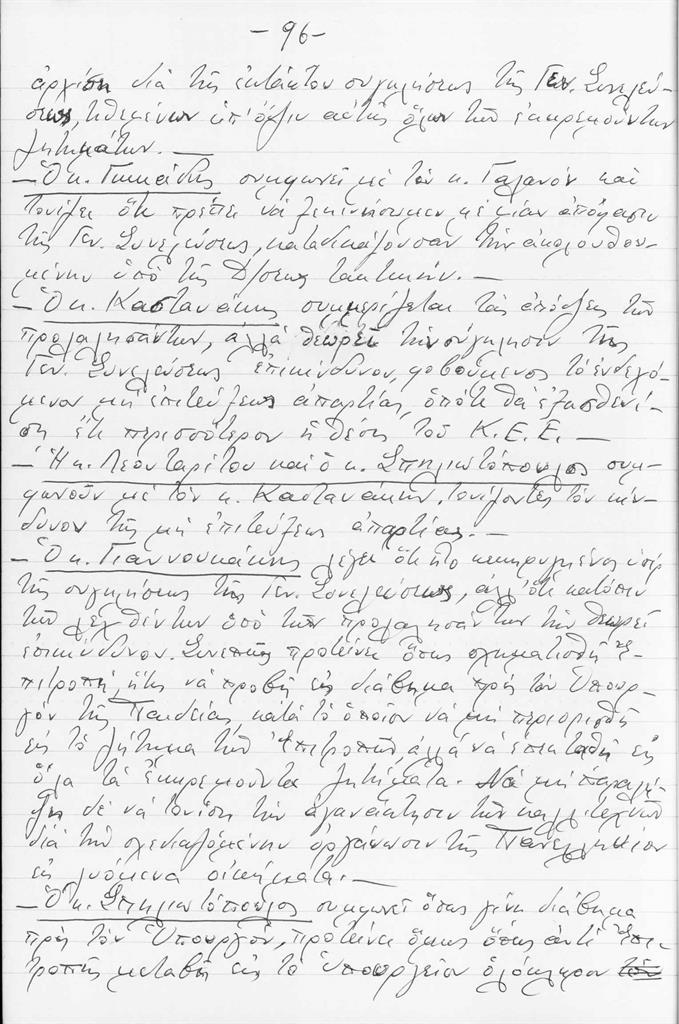 -96-
ἀρχίση διά τῆς ἐκτάκτου συγκλήσεως τῆς Γεν. Συνελεύ-
σεως, τιθεμένων ὑπ' ὄψιν αὐτῆς ὅλων τῶν ἐκκρεμούντων
ζητημάτων. —
— Ὁ κ. συμφωνεῖ μέ τόν κ. Γαλανόν καί
τονίζει ὅτι πρέπει νά ξεκινήσωμεν μέ μίαν ἀπόφασιν
τῆς Γεν. Συνελεύσεως, καταδικάζουσαν τήν ἀκολουθου-
μένην ὑπό τῆς Δ/σεως τακτικήν. —
— Ὁ κ. Καστανάκης συμμερίζεται τάς ἀπόψεις τῶν
προλαλησάντων, ἀλλά θεωρεῖ τήν σύγκλησιν τῆς
Γεν. Συνελεύσεως ἐπικίνδυνον, φοβούμενος τό ἐνδεχό-
μενον μή ἐπιτεύξεως ἀπαρτίας, ὁπότε θά ἐξασθενί-
ση ἔτι περισσότερον ἡ θέσις τοῦ Κ.Ε.Ε. —
— Ἡ κ. Λεονταρίτου καί ὁ κ. Σπηλιωτόπουλος συμ-
φωνοῦν μέ τόν κ. Καστανάκην, τονίζοντες τόν κίν-
δυνον τῆς μή ἐπιτεύξεως ἀπαρτίας. —
— Ὁ κ. Γιαννουκάκης λέγει ὅτι ἦτο κεκηρυγμένος ὑπέρ
τῆς συγκλήσεως τῆς Γεν. Συνελεύσεως, ἀλλ' ὅτι κατόπιν
τῶν λεχθέντων ὑπό τῶν προλαλησάντων τήν θεωρεῖ
ἐπικίνδυνον. Συνεπῶς προτείνει ὅπως σχηματισθῆ Ἐ-
πιτροπή, ἥτις νά προβῆ εἰς διάβημα πρός τόν Ὑπουρ-
γόν τῆς Παιδείας, κατά τό ὁποῖον νά μή περιορισθῆ
εἰς τό ζήτημα τῶν Ἐπιτροπῶν ἀλλά νά ἐπεκταθῆ εἰς
ὅλα τά ἐκκρεμοῦντα ζητήματα. Νά μή παραλεί-
ψη δέ νά τονίση τήν ἀγανάκτησιν τῶν καλλιτεχνῶν
διά τήν σχεδιαζομένην ὀργάνωσιν τῆς Πανελληνίου
εἰς λυόμενα οἰκήματα. —
— Ὁ κ. Σπηλιωτόπουλος συμφωνεῖ ὅπως γίνη διάβημα
πρός τόν Ὑπουργόν, προτείνει ὅμως ὅπως ἀντί Ἐπι-
τροπῆς μεταβῆ εἰς τό Ὑπουργεῖον ὁλόκληρον τόν